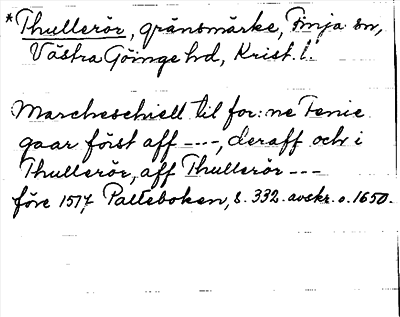 *Thullerör, gränsmärke, Finja sn,
Västra Göinge hd, Krist. l.
Marcheschiell til for:ne Fenie
gaar först aff ---, deraff och i
Thullerör, aff Thullerör ---
före 1517 Palteboken, s. 332. avskr. o. 1650.